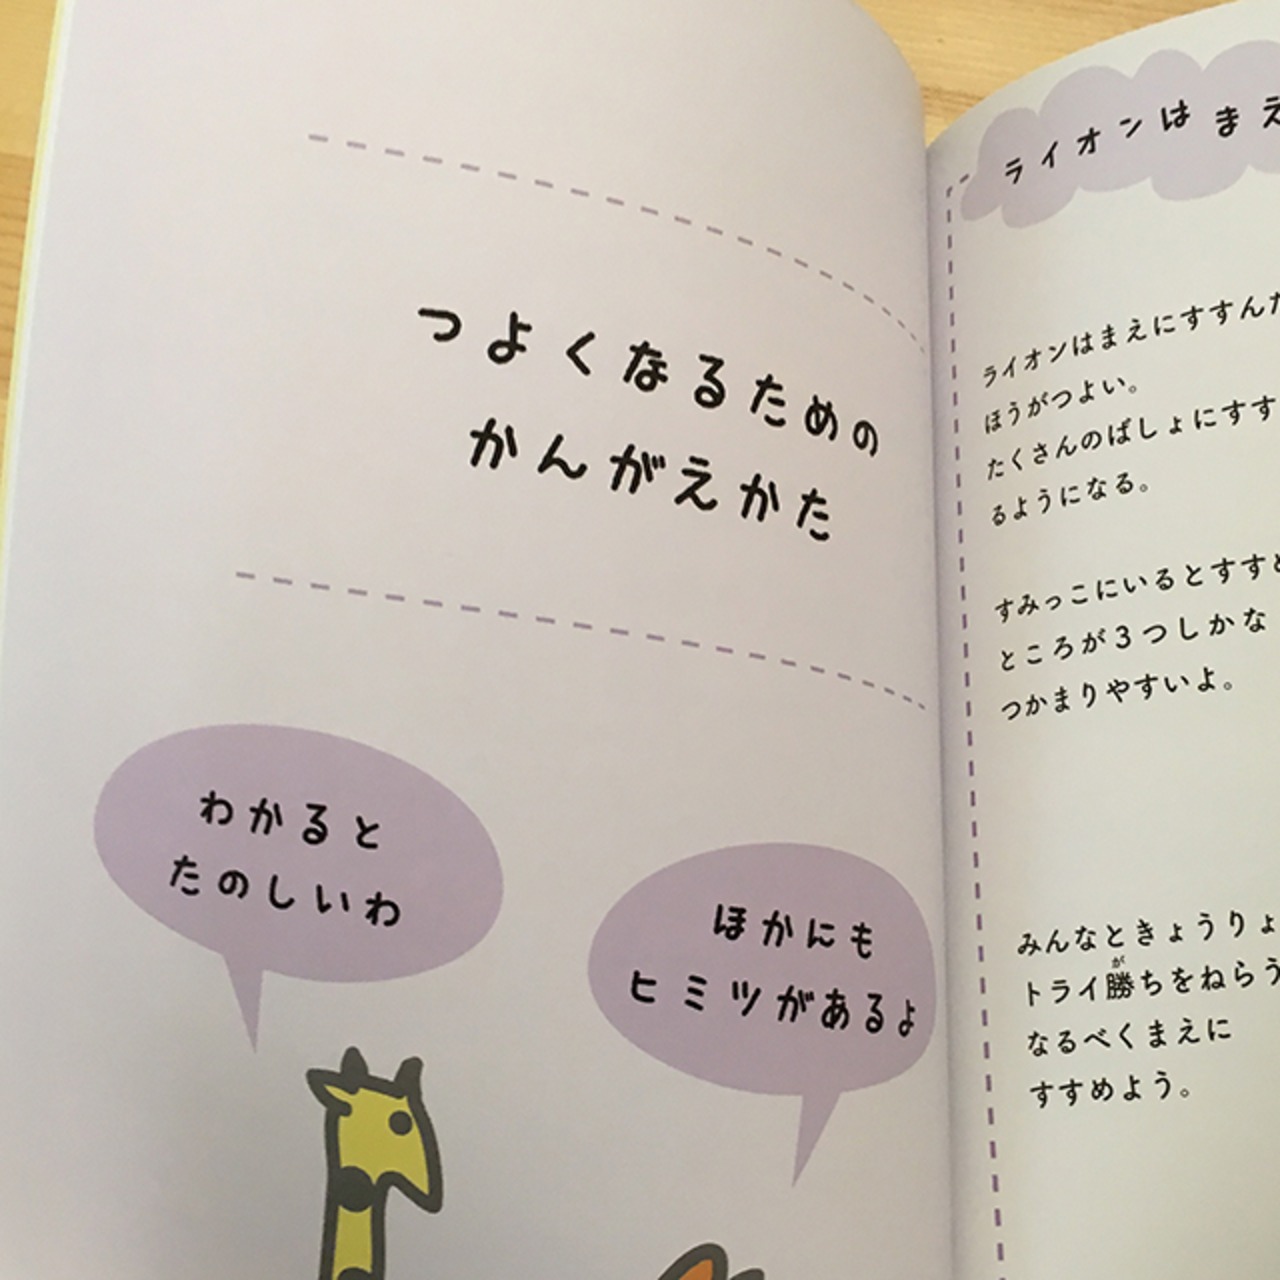 つよくなるための
かんがえかた
わかると
たのしいわ
ほかにも
ヒミツがあるよ
ライオンは まえ
ライオンはまえにすすんだ
ほうがつよい。
たくさんのばしょにすす
るようになる。
すみっこにいるとすすと
ところが3つしかな
つかまりやすいよ。
みんなときょうりょ
トライ勝ちをねらう
なるべくまえに
すすめよう。